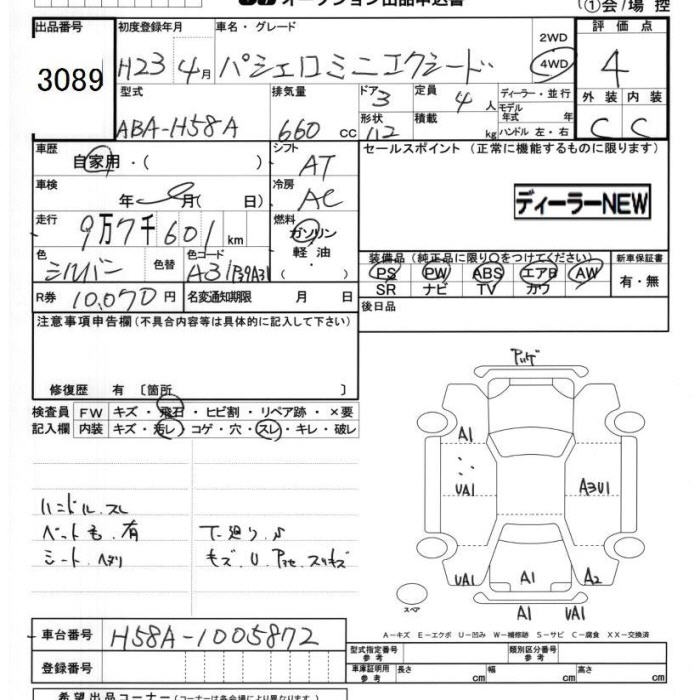 オークション出品申込書
①会場控
出品番号 初度登録年月 車名・グレード 2WD 評価点
3089 H23 4月 パジェロミニエクシード 4WD 4
型式 排気量 ドア 3 定員 4人 ディーラー・並行 外装 内装
モデル年式 年
ABA-H58A 660 cc 形状 積載 kg ハンドル 左・右 C C
車歴 自家用・( ) シフト AT セールスポイント (正常に機能するものに限ります)
車検 年 月( 日) 冷房 AC
ディーラーNEW
走行 9万7千601km 燃料 ガソリン
軽油
・( )
色 シルバー 色替 色コード A31
装備品(純正品に限り○をつけてください) 新車保証書
PS PW ABS エアB AW 有・無
SR ナビ TV カワ
R券 10,070円 名変通知期限 月 日 後日品
注意事項申告欄(不具合内容等は具体的に記入して下さい)
修復歴 有 〔箇所 〕
検査員 FW キズ・飛石・ヒビ割・リペア跡・×要
記入欄 内装 キズ・汚レ・コゲ・穴・スレ・キレ・破レ
A1
UA1 A3U1
UA1 A1 A2
A1 UA1
スペア
ハンドル.スレ
ペット毛.有 下廻り.S
シート.ヘタリ キズ.U
A-キズ E-エクボ U-凹み W-補修跡 S-サビ C-腐食 XX-交換済
車台番号 H58A-1005872
登録番号
型式指定番号 参考 類別区分番号 参考
車庫証明用 参考 長さ cm 幅 cm 高さ cm
希望出品コーナー(コーナーは各会場により異なります)